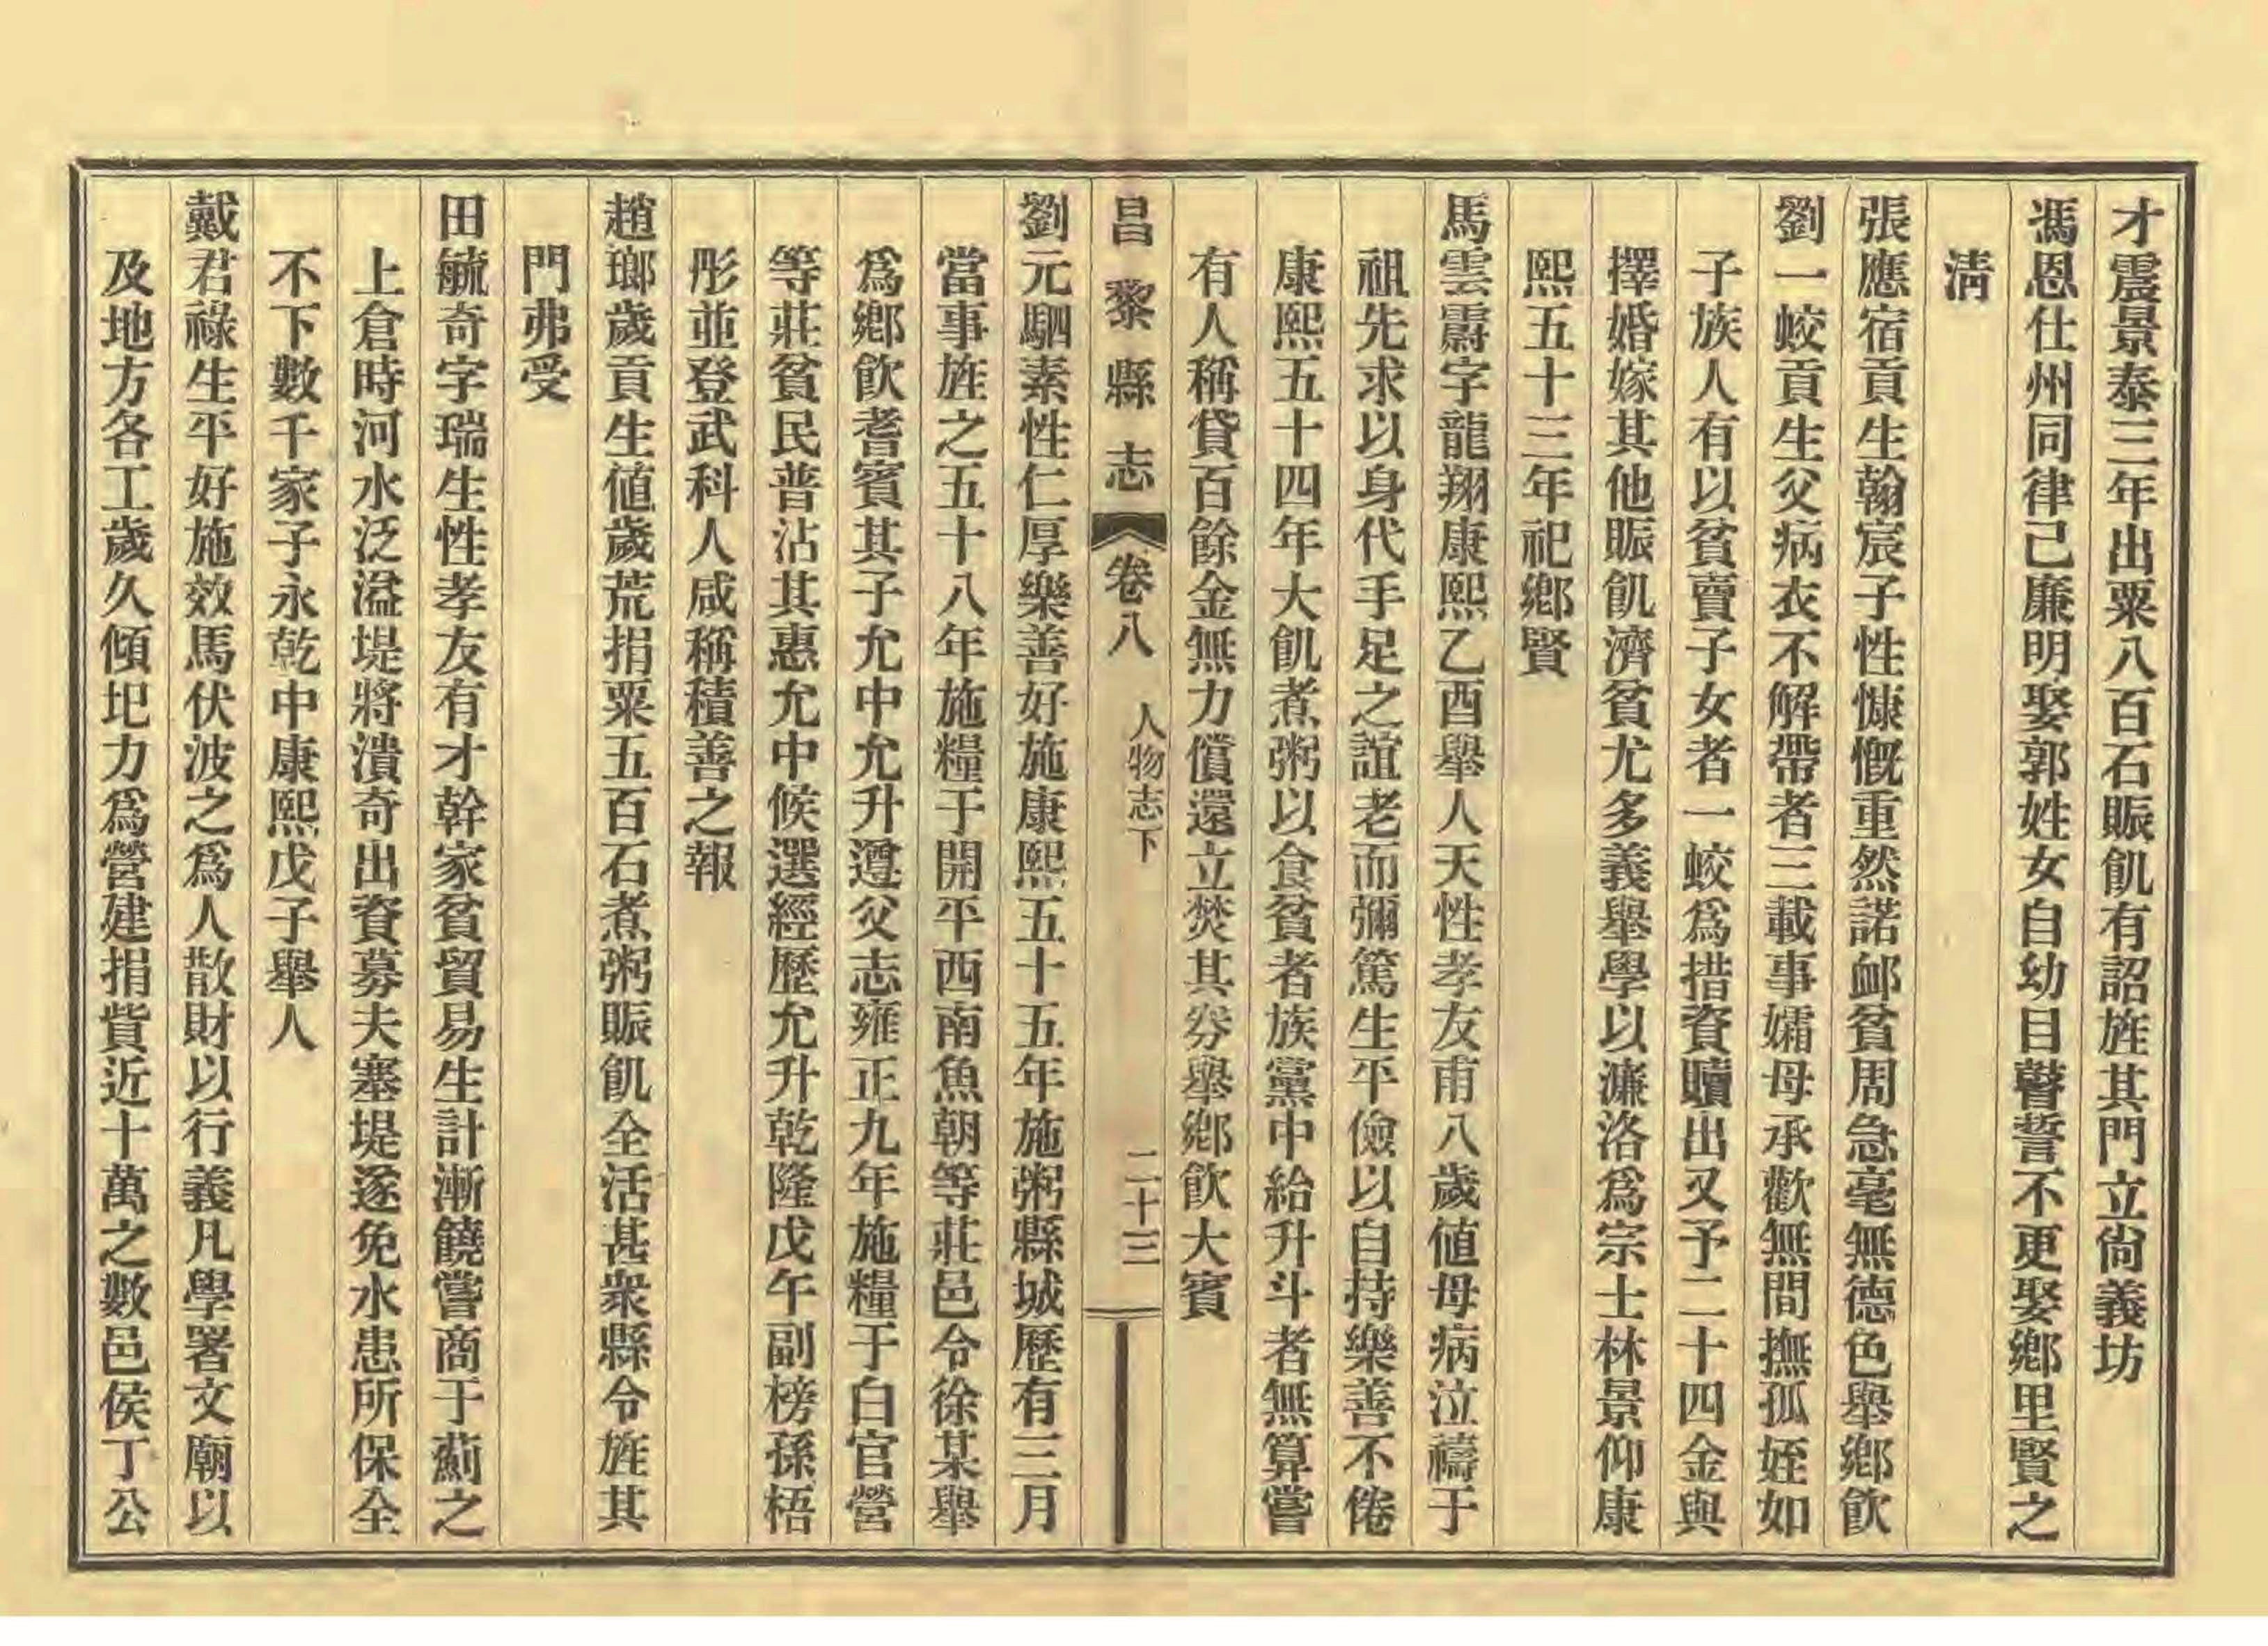 才震景泰三年出粟八百石賑飢有詔旌其門立尙義坊
馮恩仕州同律己廉明娶郭姓女自幼目瞽誓不更娶鄕里賢之
淸
張應宿貢生翰宸子性慷慨重然諾䘏貧周急毫無德色舉鄕飮
劉一蛟貢生父病衣不解帶者三載事孀母承歡無間撫孤姪如
子族人有以貧賣子女者一蛟爲措資贖出又予二十四金與
擇婚嫁其他賑飢濟貧尤多義舉學以濂洛爲宗士林景仰康
熙五十三年祀鄕賢
馬雲霨字龍翔康熙乙酉舉人天性孝友甫八歲値母病泣禱于
祖先求以身代手足之誼老而彌篤生平儉以自持樂善不倦
康熙五十四年大飢煮粥以食貧者族黨中給升斗者無算嘗
有人稱貸百餘金無力償還立焚其券舉鄕飮大賓
昌黎縣志 卷八 人物志下 二十三
劉元駟素性仁厚樂善好施康熙五十五年施粥縣城歷有三月
當事旌之五十八年施糧于開平西南魚朝等莊邑令徐某舉
爲鄕飮耆賓其子允中允升遵父志雍正九年施糧于白官營
等莊貧民普沾其惠允中候選經歷允升乾隆戊午副榜孫梧
彤並登武科人咸稱積善之報
趙瑯歲貢生値歲荒捐粟五百石煮粥賑飢全活甚衆縣令旌其
門弗受
田毓奇字瑞生性孝友有才幹家貧貿易生計漸饒嘗商于薊之
上倉時河水泛溢堤將潰奇出資募夫塞堤遂免水患所保全
不下數千家子永乾中康熙戊子舉人
戴君祿生平好施效馬伏波之爲人散財以行義凡學署文廟以
及地方各工歲久傾圯力爲營建捐貲近十萬之數邑侯丁公